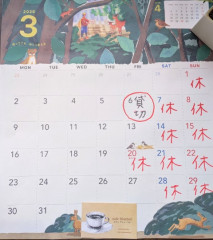 2026
3
MON TUE WED THU FRI SAT SUN
1 休
2 3 4 5 6 貸切 7 休 8 休
9 10 11 12 13 14 休 15 休
16 17 18 19 20 休 21 休 22 休
23 24 25 26 27 28 休 29 休
30 31